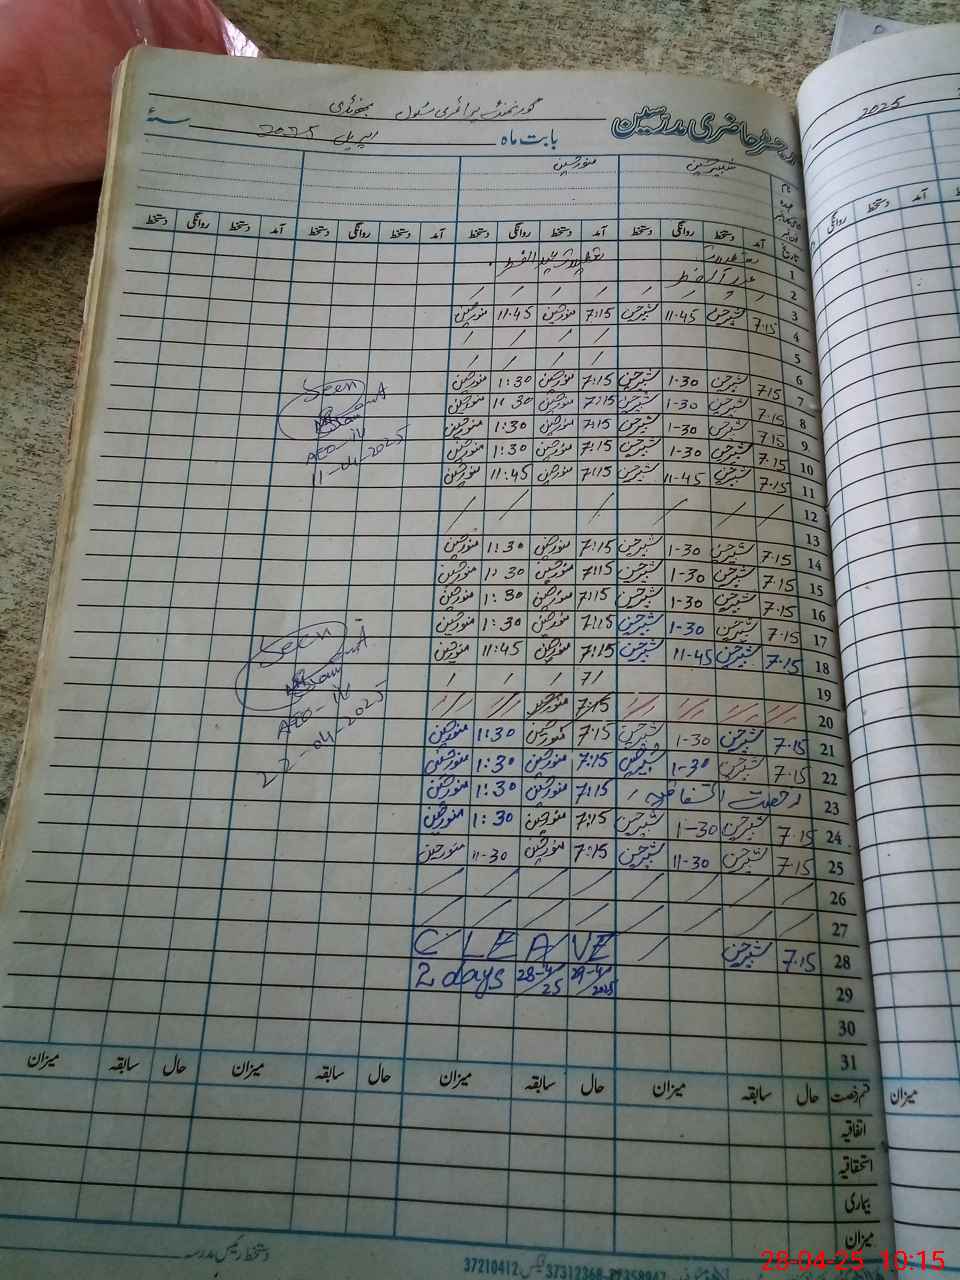 رجسٹر حاضری مدرسین
گورنمنٹ پرائمری سکول
بابت ماہ اپریل 2025 سنہ
شبیر حسین منور حسین
تاریخ آمد دستخط روانگی دستخط آمد دستخط روانگی دستخط آمد دستخط روانگی دستخط آمد دستخط روانگی دستخط
1
2
3
4 7:15 شبیر حسین 11-45 شبیر حسین 7:15 منور حسین 11:45 منور حسین
5
6
7 7:15 شبیر حسین 1-30 شبیر حسین 7:15 منور حسین 1:30 منور حسین
8 7:15 شبیر حسین 1-30 شبیر حسین 7:15 منور حسین 1:30 منور حسین
9 7:15 شبیر حسین 1-30 شبیر حسین 7:15 منور حسین 1:30 منور حسین
10 7:15 شبیر حسین 1-30 شبیر حسین 7:15 منور حسین 1:30 منور حسین
11 7:15 شبیر حسین 11-45 شبیر حسین 7:15 منور حسین 11:45 منور حسین
Seen
AEO-IV
11-04-2025
12
13
14 7:15 شبیر حسین 1-30 شبیر حسین 7:15 منور حسین 1:30 منور حسین
15 7:15 شبیر حسین 1-30 شبیر حسین 7:15 منور حسین 1:30 منور حسین
16 7:15 شبیر حسین 1-30 شبیر حسین 7:15 منور حسین 1:30 منور حسین
17 7:15 شبیر حسین 1-30 شبیر حسین 7:15 منور حسین 1:30 منور حسین
18 7:15 شبیر حسین 11-45 شبیر حسین 7:15 منور حسین 11:45 منور حسین
19
20 7:15
21 7:15 شبیر حسین 1-30 شبیر حسین 7:15 منور حسین 1:30 منور حسین
22 7:15 شبیر حسین 1-30 شبیر حسین 7:15 منور حسین 1:30 منور حسین
Seen
AEO-IV
22-04-2025
23 رخصت اتفاقیہ 7:15 منور حسین 1:30 منور حسین
24 7:15 شبیر حسین 1-30 شبیر حسین 7:15 منور حسین 1:30 منور حسین
25 7:15 شبیر حسین 11-30 شبیر حسین 7:15 منور حسین 11-30 منور حسین
26
27
28 7:15 شبیر حسین C LEAVE
29 2 days 28-4/25 29-4/2025
30
31
قسم رخصت حال سابقہ میزان حال سابقہ میزان حال سابقہ میزان حال سابقہ میزان
اتفاقیہ
استحقاقیہ
بیماری
میزان
دستخط رئیس مدرسہ
37210412 فیکس 37312368
2025
دستخط روانگی
آمد
میزان
28-04-25 10:15